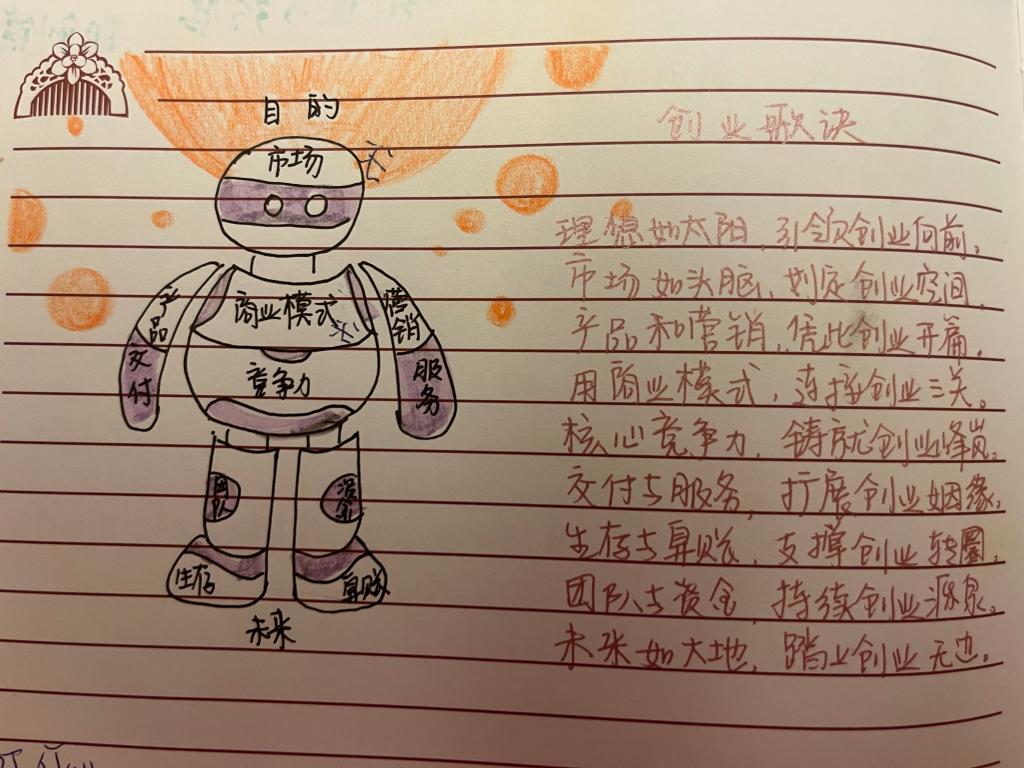 目的
市场
商业模式
竞争力
产品
交付
营销
服务
团队
资金
生存
算账
未来
创业歌诀
理想如太阳，引领创业向前。
市场如头脑，划定创业空间。
产品和营销，凭此创业开篇。
用商业模式，连接创业三关。
核心竞争力，铸就创业峰岚。
交付与服务，扩展创业姻缘。
生存与算账，支撑创业转圈。
团队与资金，持续创业源泉。
未来如大地，踏上创业无边。